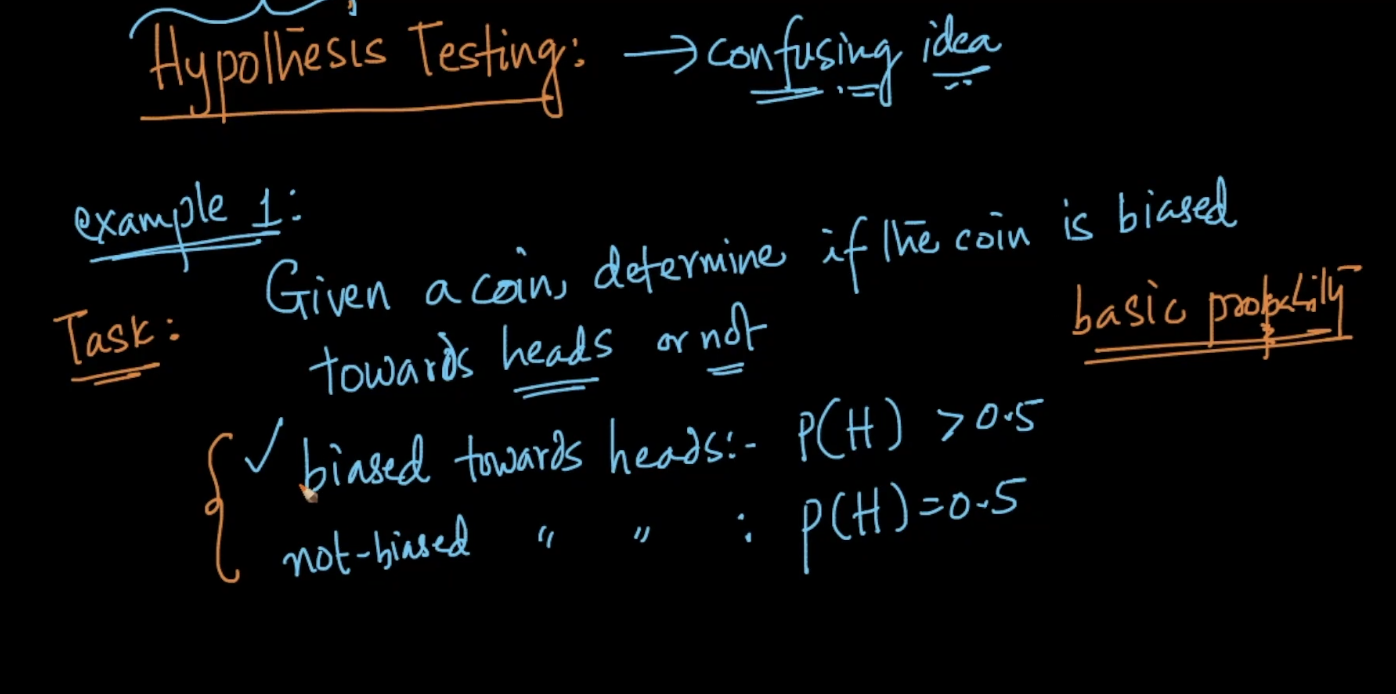 Hypothesis Testing: → confusing idea
example 1:
Given a coin, determine if the coin is biased
Task:
towards heads or not
basic probability
✓ biased towards heads:- P(H) > 0.5
not-biased " " : P(H) = 0.5